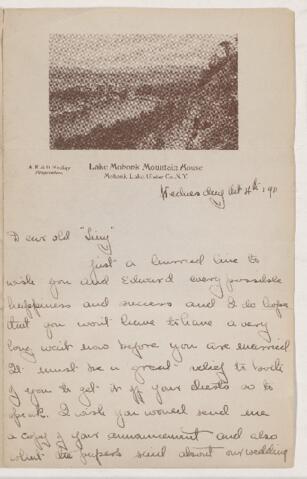 Lake Mohonk Mountain House
Mohonk Lake, Ulster Co., N.Y.
Proprietors.
Wednesday Oct 4th, 1911
Dear old
just a hurried line to
wish you and Edward every possible
happiness and success and I do hope
that you won't have to have a very
long wait now before you are married
It must be a great relief to both
of you to get it off your chests so to
speak. I wish you would send me
a copy of your announcement and also
what the papers said about our wedding